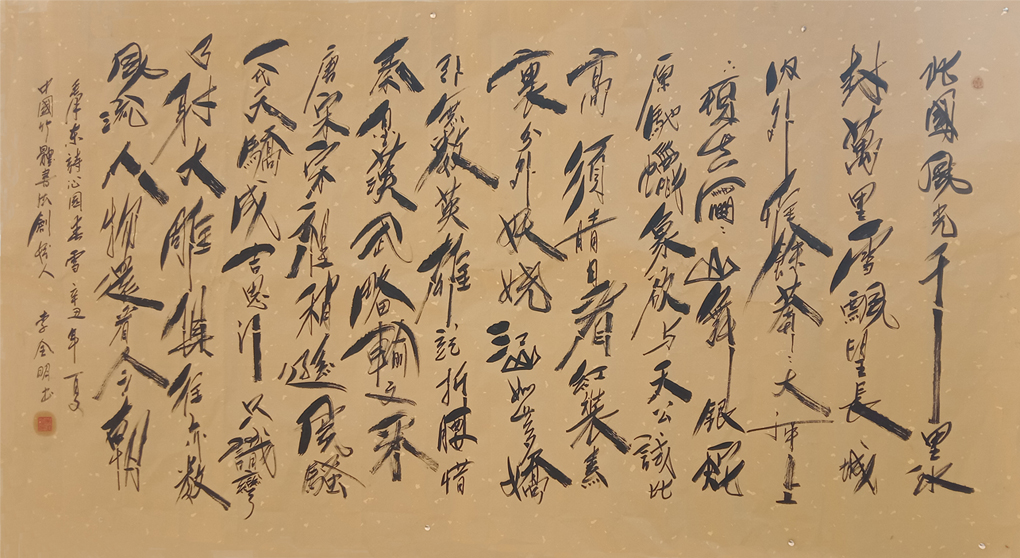 北國風光千里冰
封萬里雪飄望長城
内外惟餘莽〻大河上
下頓失滔〻山舞銀蛇
原馳蠟象欲与天公試比
高須晴日看紅裝素
裹分外妖嬈江山如此多嬌
引無數英雄競折腰惜
秦皇漢武略輸文采
唐宗宋祖稍遜風騷
一代天驕成吉思汗只識彎
弓射大雕俱往矣數
風流人物還看今朝
毛澤東詩沁園春雪 辛丑年夏
中國竹體書法創始人 李全明书